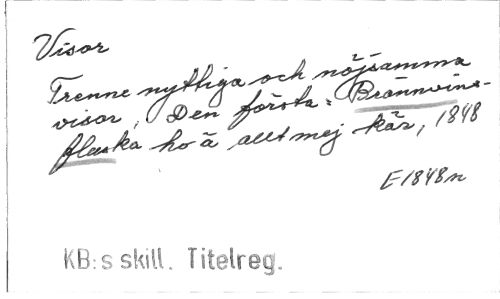 Visor
Trenne nyttiga och nöjsamma
visor, Den första: Brännvins-
flaska ho ä allt mej kär, 1848
E1848n
KB:s skill. Titelreg.